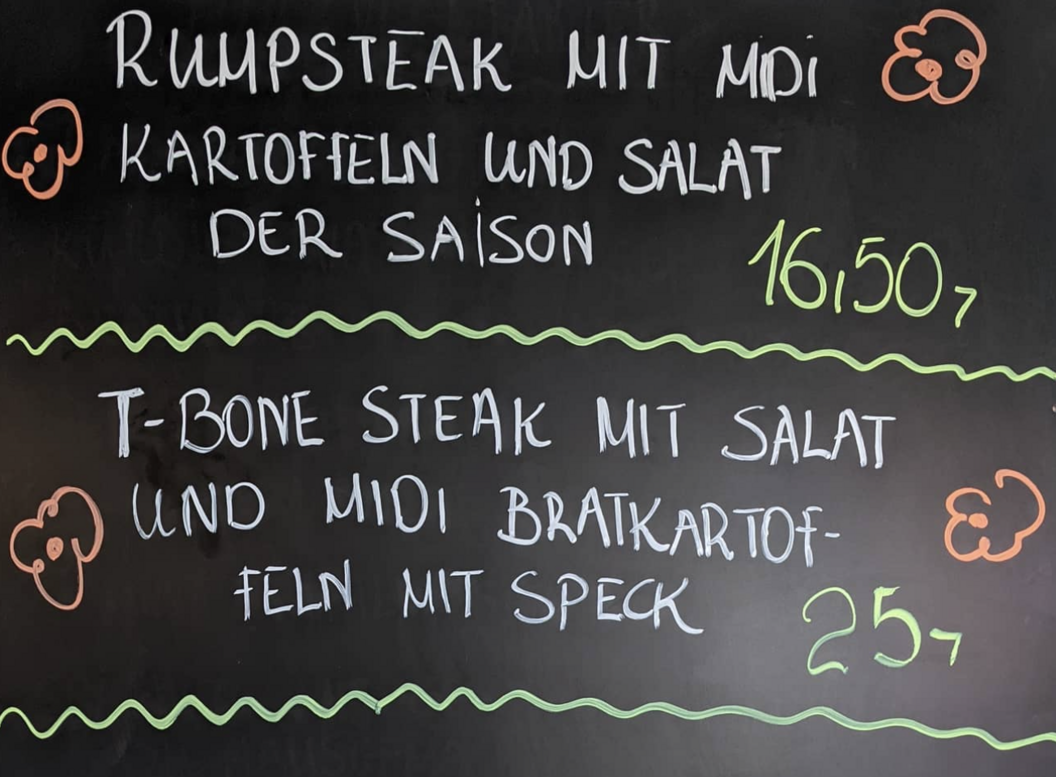 RUMPSTEAK MIT MIDI
KARTOFFELN UND SALAT
DER SAISON
16,50,-
T-BONE STEAK MIT SALAT
UND MIDI BRATKARTOF-
FELN MIT SPECK
25,-